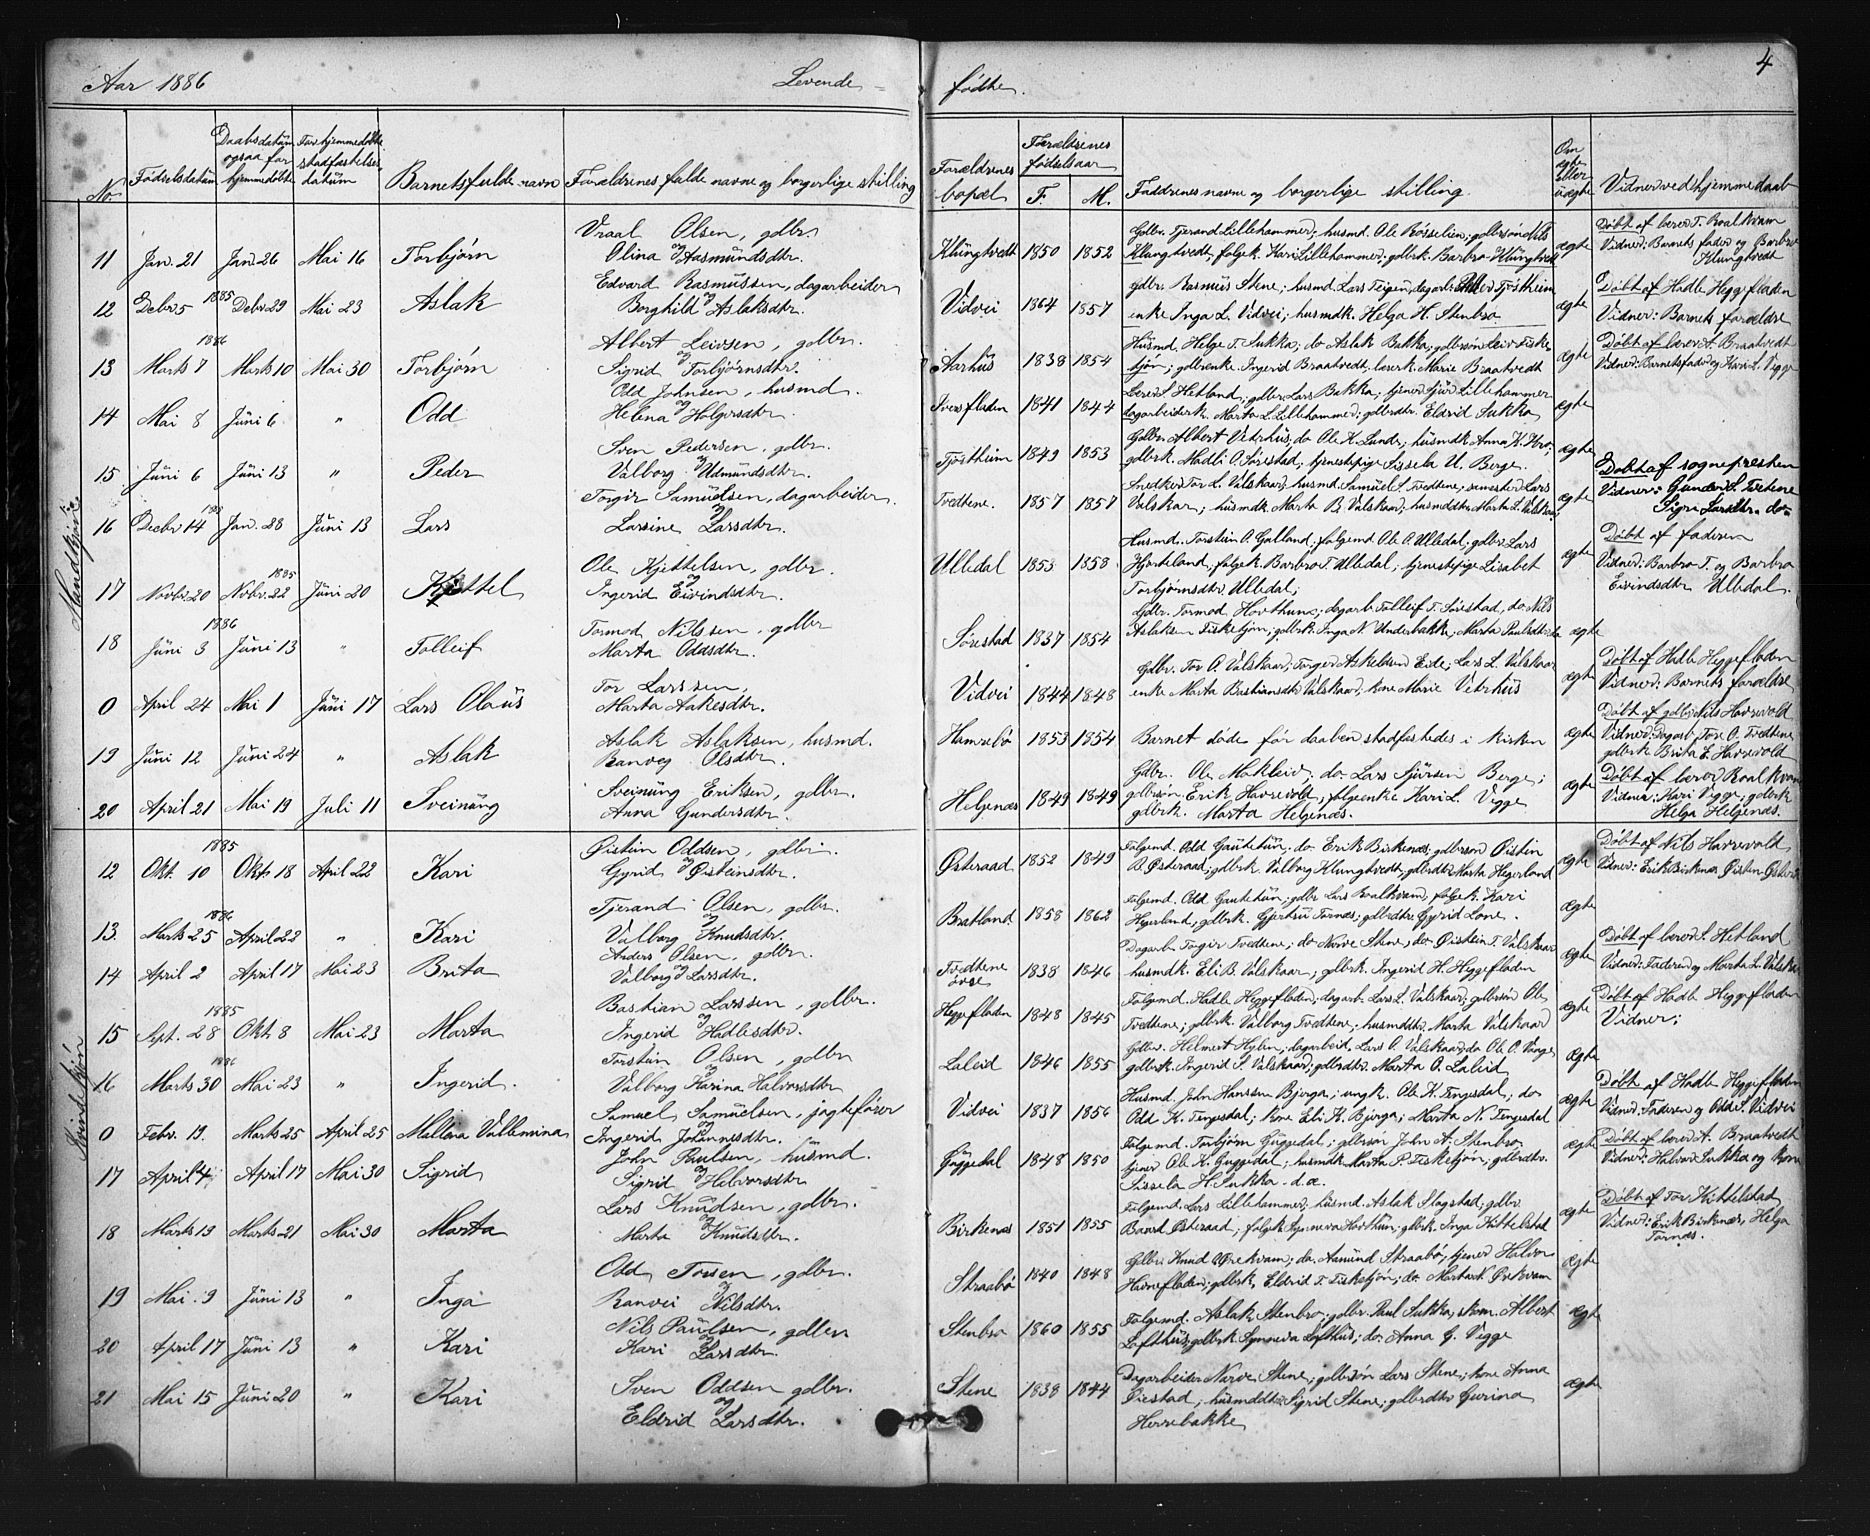 4
Aar 1886 Levende = fødte.
No. Fødselsdatum Daabsdatum ogsaa for hjemmedøbte For hjemmedøbte stadfæstelsesdatum Barnets fulde navn Forældrenes fulde navne og borgerlige stilling Forældrenes bopæl Forældrenes fødselsaar F. M. Faddrenes navne og borgerlige stilling. Om ægte eller uægte Vidner ved hjemmedaab
Mandkjøn
11 Jan. 21 Jan. 26 Mai 16 Torbjørn
Vraal Olsen, gdbr.
og
Olina Aasmundsdtr.
Klungtvedt 1850 1852
Gdbr. Tjerand Lillehammer; husmd. Ole Røsselien; gdbrsøn Nils
Klungtvedt, folgek. Kari Lillehammer; gdbrk. Barbro Klungtvedt
ægte
Døbt af lærer T. Roalkvam
Vidner: Barnets fader og Barbro
Klungtvedt
12 Debr. 5 1885 Debr. 29 Mai 23 Aslak
Edvard Rasmussen, dagarbeider
og
Borghild Aslaksdtr.
Vidvei 1864 1857
gdbr. Rasmus Stene; husmd. Lars Teigen, dagarb. Tjøstheim
enke Inga L. Vidvei; husmdk. Helga H. Stenbro.
ægte
Døbt af Hadle Heggefladen
Vidner: Barnets forældre
1886
13 Marts 7 Marts 10 Mai 30 Torbjørn
Albert Leivsen, gdbr.
og
Sigrid Torbjørnsdtr.
Aarhus 1838 1854
Husmd. Helge T. Sukka; do Aslak Bakka; gdbrsøn Leiv Fiske-
tjøn; gdbrenke. Ingerid Braatvedt, lærerk. Marie Braatvedt
ægte
Døbt af lærer A. Braatvedt
Vidner: Barnets fader og Kari L. Vigge
14 Mai 8 Juni 6 " Odd
Odd Johnsen, husmd.
og
Helena Holgersdtr.
Iversfladen 1841 1844
Lærer S. Hetland; gdbr. Lars Bakka; tjener Sjur Lillehammer
dagarbeiderk. Marta L. Lillehammer; gdbrdtr. Eldrid Sukka
ægte
15 Juni 6 Juni 13 " Peder
Sven Pedersen, gdbr.
og
Valborg Udmundsdtr.
Tjøstheim 1849 1853
Gdbr. Albert Vetrhus, do Ole K. Lunde; husmdk Anna K. Mo;
gdbrk. Madli O. Sørestad; tjenestepige Sissela U. Berge.
ægte
16 Decbr 14 Jan. 28 Juni 13 Lars
Torgir Samuelsen, dagarbeider
og
Larsine Larsdtr.
Tvedtene. 1857 1857
Snedker Tor L. Valskaar, husmd. Samuel S. Tvedtene; Lars
Valskar; husmdk. Marta B. Valskaar; husmddtr Marta L. Valskaar
ægte
Døbt af sognepresten
Vidner: Gunder S. Tvetene
Sigri Larsdtr. do
1885
17 Novbr. 20 Novbr. 22 Juni 20 Kjettel
Ole Kjettelsen, gdbr.
og
Ingerid Eivindsdtr.
Ulledal 1853 1858
Husmd. Torstein O. Galland, folgemd. Ole O. Ulledal; gdbr. Lars
Hjorteland; folgek. Barbro T. Ulledal; tjenestepige Lisabet
Torbjørnsdtr. Ulledal;
ægte
Døbt af faderen
Vidner: Barbro T. og Barbro
Eivindsdtr Ulledal.
1886
18 Juni 3 Juni 13 " Tolleif
Tormod Nilssen, gdbr
Marta Oddsdtr.
Sørestad 1837 1854
Gdbr. Tormod Hovthun; dagarb. Tolleif T. Sørestad, do. Nils
Aslaksen Fisketjøn; gdbrk. Inga N. Underbakke; Marta Paulsdtr. do
ægte
0 April 24 Mai 1 Juni 17 Lars Olaus
Tor Larssen,
Marta Aakesdtr.
Vidvei 1844 1848
Gdbr. Tor O. Valskaar; Torger Askeldsen Eide; Lars L. Valskaar
enke Marta Bastiansdtr Valskaar; kone Marie Vetrhus
ægte
Døbt af Hadle Heggefladen
Vidner: Barnets forældre
19 Juni 12 Juni 24 " Aslak
Aslak Aslaksen, husmd.
Ranveg Olsdtr.
Hamrebø 1853 1854
Barnet døde før daaben stadfæstedes i kirken
ægte
Døbt af gdbr. Nils Havrevold
Vidner: Dagarb. Tor O. Tvedtene
gdbrk Brita E. Havrevold
20 April 21 Mai 19 Juli 11 Sveinung
Sveinung Eriksen, gdbr.
Anna Gundersdtr.
Helgenæs 1849 1849
Gdbr. Ole Mokleiv; do Lars Sjursen Berge;
gdbrsøn. Erik Havrevold; folgeenke Kari L. Vigge
gdbrk. Marta Helgenæs.
ægte
Døbt af lærer Roalkvam
Vidner: Kari Vigge; gdbrk
Helga Helgenæs.
Kvindekjøn
1885
12 Okt. 10 Okt. 18 April 22 Kari
Øistein Oddsen, gdbr.
og
Gyrid Øisteinsdtr.
Østeraad 1852 1849
Folgemd. Odd Gautetun; do Erik Birkenæs; gdbrsøn Øistin
B. Østeraad; gdbrk. Valborg Klungtvedt; gdbrdtr. Marta Hegerland
ægte
Døbt af Nils Havrevold
Vidner: Erik Birkenæs Øisten Østeraad
1886
13. Marts 25 April 22 " Kari
Tjerand Olsen, gdbr.
og
Valborg Knudsdtr.
Bratland 1858 1862
Folgemd. Odd Gautetun; gdbr Lars Roalkvam; folgek. Kari
Hegerland; gdbrk. Gjertru Tornæs; gdbrdtr Gyrid Lone.
ægte
14 April 2 April 17 Mai 23 Brita
Anders Olsen, gdbr.
og
Valborg Larsdtr.
Tvedtene øvre 1838 1846
Dagarb. Torgir Tvedtene; do Narve Stene, do Øistein T. Valskaar
husmdk. Eli B. Valskaar; gdbrk. Ingerid H. Heggefladen
ægte
Døbt af lærer S. Hetland
Vidner: Faderen og Marta L. Valska
1885
15 Sept. 28 Okt 8 Mai 23 Marta
Bastian Larssen, gdbr.
og
Ingerid Hadlesdtr.
Heggefladen 1848 1845
Folgemd. Hadle Heggefladen, dagarb. Lars L. Valskaar; gdbrsøn Ole
Tvedtene; gdbrk. Valborg Tvedtene; husmddtr. Marta Valskaar
ægte
Døbt af Hadle Heggefladen
Vidner:
1886
16 Marts 30 Mai 23 " Ingerid.
Torstein Olsen, gdbr
og
Valborg Karina Halvorsdtr
Laleid 1846 1855
Gdbr. Helmert Hylen; dagarbeid. Lars O. Valskaar, do Ole O. Vaage,
gdbrk. Ingerid S. Valskaar; gdbrdtr. Marta O. Laleid
ægte
0 Febr. 19. Marts 25 April 25 Mallena Vallemina
Samuel Samuelsen, jagtefører
og
Ingerid Johannesdtr.
Vidvei 1837 1856
Husmd. John Hanssen Bjorga; ungk. Ole K. Tengesdal, do
Odd K. Tengesdal; kone Eli K. Bjorga; Marta N. Tengesdal
ægte
Døbt af Hadle Heggefladen
Vidner: Faderen og Odd S. Vidvei
17 April 4 April 17 Mai 30 Sigrid
John Paulsen, husmd.
og
Sigrid Helvorsdtr
Guggedal 1848 1850
Folgemd. Torbjørn Guggedal; gdbrsøn John A. Stenbro.
tjener Ole K. Guggedal; husmdk Marta P. Fisketjøn; gdbrdtr.
Sissela H. Sukka. d.æ.
ægte
Døbt af lærer A. Braatvedt
Vidner: Halvor Sukka og kone
18 Marts 19 Marts 21 Mai 30 Marta
Lars Knudsen, gdbr.
og
Marta Knudsdtr.
Birkenæs 1851 1855
Folgemd. Lars Lillehammer; husmd. Aslak Slagstad; gdbr.
Baard Østeraad; folgek Synneva Hovthun; gdbrk. Inga Kittelstad
ægte
Døbt af Tor Kittelstad
Vidner: Erik Birkenæs, Helga
Tornæs.
19 Mai 9 Juni 13 " Inga
Odd Torsen, gdbr.
og
Ranvei Nilsdtr.
Straabø 1840 1848
Gdbr. Knud Ørekvam; do. Asmund Straabø; tjener Halvor
Havrefladen; gdbrk. Eldrid T. Fisketjøn; do Marta K. Ørekvam
ægte
20 April 17 Juni 13 " Kari
Nils Paulsen, gdbr
og
Kari Larsdtr.
Stenbro 1860 1855
Folgemd. Aslak Stenbro; gdbr. Paul Sukka; skom. Albert
Lofthus; gdbrk. Synneva Lofthus; do. Anna G. Vigge
ægte
21 Mai 15 Juni 20 " Kari
Sven Oddsen gdbr.
og
Eldrid Larsdtr.
Stene 1838 1844
Dagarbeider Narve Stene; gdbrsøn Lars Stene; kone Anna
Øiestad; husmddtr. Sigrid Stene; gdbrdtr Gurina
Herrebakke
ægte